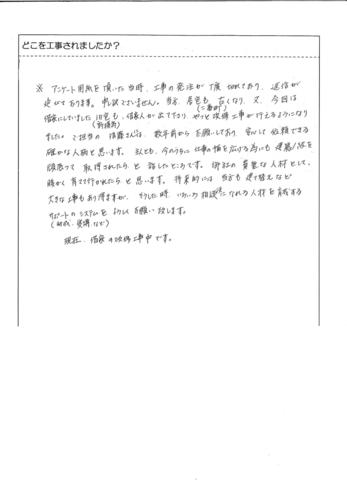 どこを工事されましたか？
※ アンケート用紙を頂いた当時、工事の発注が 切れており、返信が
遅れております。申訳ございません。当方、 も 亡くなり、又、今回は
(二番町)
借家にしていました 旧宅も、借家人が出て行き、やっと改修工事が行えるようになり
ました。ご担当の 後藤さんは、数年前から お願いしており、安心して 依頼できる
確かな人柄と思います。 私とも、今のうちに 仕事の幅を広げる為にも 建築 級を
頑張って 取得されたら と 話したところです。御社の 貴重な 人材として、
暖かく 育てて行かれたら と思います。 将来的には 当方も 建て替えなど
大きな工事もあり得ますが、 そうした時 いろいろ相談になれる人材を育成する
サポートのシステムを よろしくお願い致します。
(助成、奨励、など)
現在、借家の改修工事中です。